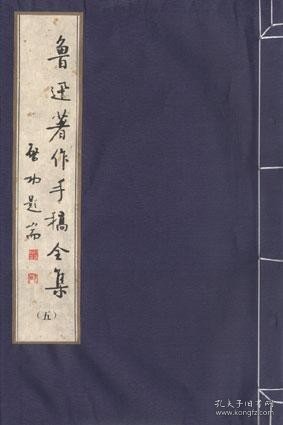 鲁迅著作手稿全集
启功题耑
（五）
孔夫子旧书网
www.kongfz.com